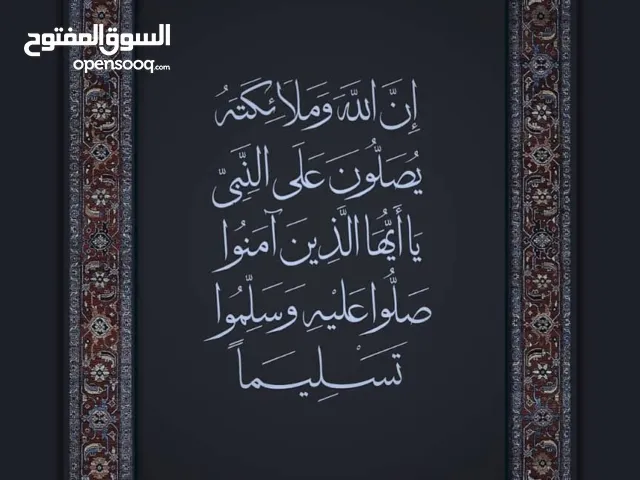 السوق المفتوح
opensooq.com
إِنَّ اللَّهَ وَمَلَائِكَتَهُ
يُصَلُّونَ عَلَى النَّبِيِّ
يَا أَيُّهَا الَّذِينَ آمَنُوا
صَلُّوا عَلَيْهِ وَسَلِّمُوا
تَسْلِيمًا